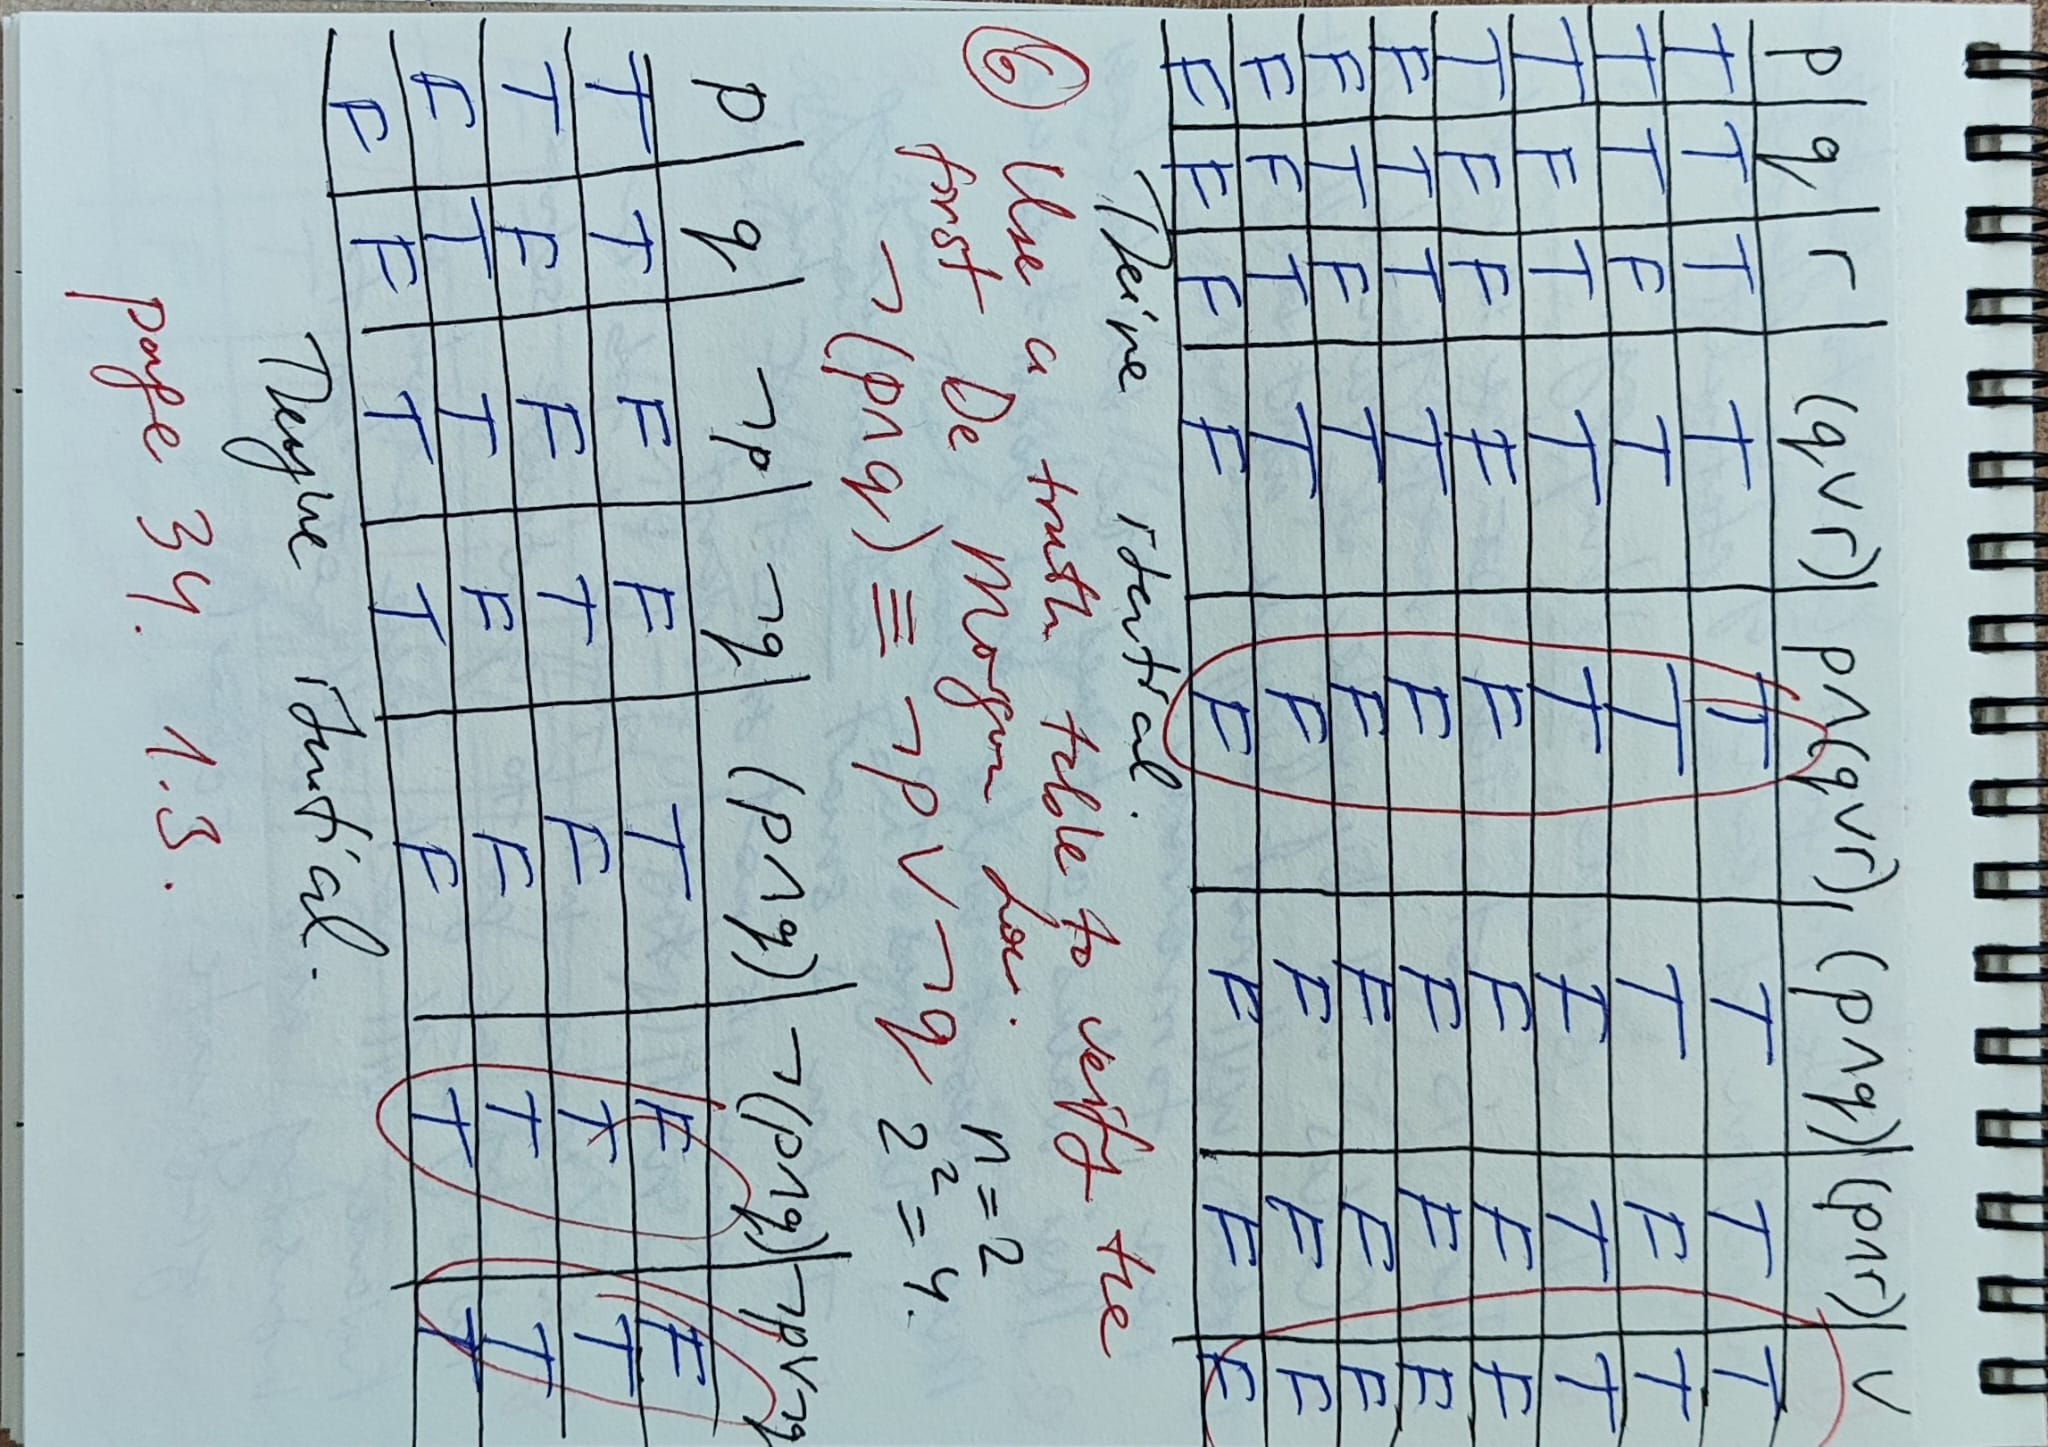 p | q | r | (q∨r) | p∧(q∨r) | (p∧q) | (p∧r) | ∨
T T T T T T T T
T T F T T T F T
T F T T T F T T
T F F F F F F F
F T T T F F F F
F T F T F F F F
F F T T F F F F
F F F F F F F F
idential.
6 Use a truth table to verify the
first De Morgan Law. n=2
¬(p∧q) ≡ ¬p∨¬q 2²=4.
p | q | ¬p | ¬q | (p∧q) | ¬(p∧q) | ¬p∨¬q
T T F F T F F
T F F T F T T
F T T F F T T
F F T T F T T
idential.
page 34. 1.3.